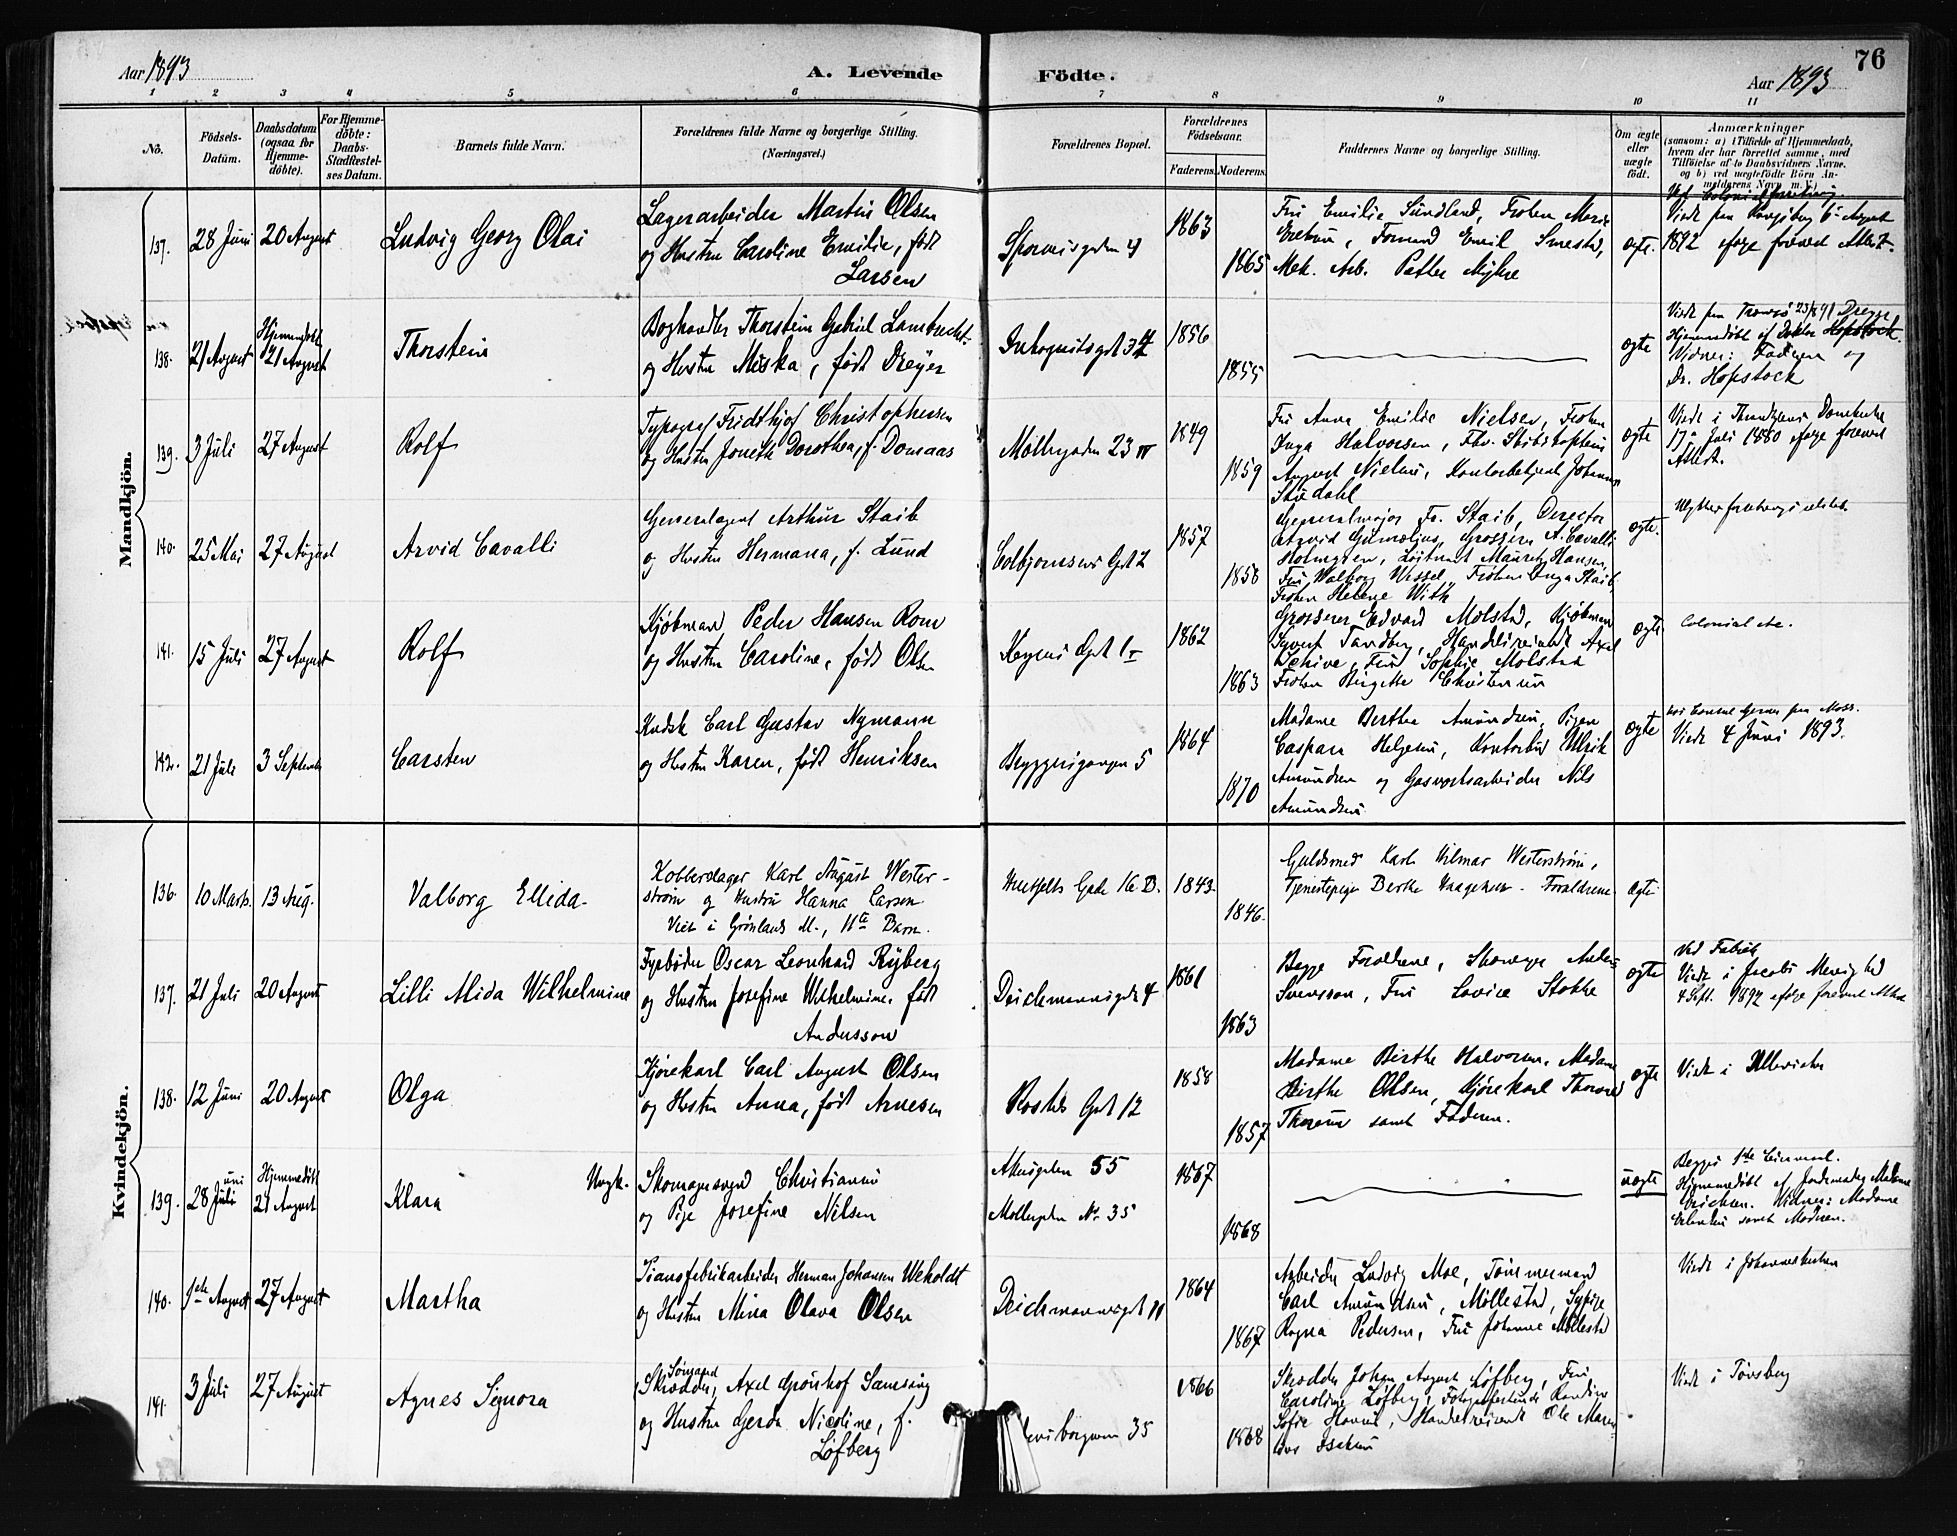 76
Aar 1893
A. Levende Födte.
Aar 1893
1 2 3 4 5 6 7 8 9 10 11
No.
Födsels-Datum.
Daabsdatum (ogsaa for Hjemmedöbte).
For Hjemmedöbte: Daabs-Stadfæstelses Datum.
Barnets fulde Navn.
Forældrenes fulde Navne og borgerlige Stilling. (Næringsvei.)
Forældrenes Bopæl.
Forældrenes Födselsaar.
Faderens. Moderens.
Faddernes Navne og borgerlige Stilling.
Om ægte eller uægte født.
Anmærkninger
(saasom: a) i Tilfælde af Hjemmedaab, hvem der har forrettet samme, med Tilföielse af to Daabsvidners Navne. og b) ved uægtefödte Börn Anmelderens Navn m. V.)
Mandkjön.
137. 28 Juni 20 August
Ludvig Georg Olai
Lagerarbeider Martin Olsen
og Hustru Caroline Emilie, født
Larsen
1863
1865
Fru Emilie Sundland, Frøken Marie
Formand Emil
Mek. Arb.
ægte.
6 August
1892 ifølge forevist Attest.
138. 21 August Hjemmedøbt 21 August
Thorstein
Boghandler Thorstein Gabriel Lambrecht
og Hustru Miska, født Dreyer
Inkognitogdt 34
1856
1855
ægte
Viet fra Tromsø
Hjemmedøbt af Doktor Hopstock
Vidner: Faderen og
Dr. Hopstock
139. 3 Juli 27 August
Rolf
Typograf Fridthjof Christophersen
og Hustru Dorothea, f. Domaas
Møllergaden 23 IV
1849
1859
Fru Anna Emilie Nielsen, Frøken
Inga Halvorsen,
August Nielsen, Kontorbetjent Johannes
Stördahl
ægte
Viet i Trondhjems Domkirke
17 Juli 1880 ifølge forevist
Attest.
140. 25 Mai 27 August
Arvid Cavalli
Generalagent Arthur Staib
og Hustru Hermana, f. Lund
Colbjørnsens Gdt 2
1857
1858
Generalmajor Fr. Staib, Director
Arvid Gumælius, Grosserer A. Cavalli
Holmgren, Løitnant Mauritz Hansen,
Fru Valborg Wessel, Frøken Inga Staib,
Frøken Helene With
ægte.
141. 15 Juli 27 August
Rolf
Kjøbmand Peder Hansen Rom
og Hustru Caroline, født Olsen
Keysers Gdt 1
1862
1863
Grosserer Edvard Molstad, Kjøbmand
Syvert Sandberg, Handelsreisende Axel
Schive, Fru Sophie Molstad
Frøken Birgitte Christensen
ægte
Colonial etc.
142. 21 Juli 3 September
Carsten
Kudsk Carl Gustav Nymann
og Hustru Karen, født Henriksen
Bryggerigangen 5
1864
1870
Madame Berthe Amundsen, Pigen
Caspara Helgesen, Kontorbud Ulrik
Amundsen og Gasværksarbeider Nils
Amundsen
ægte
Viet 4 Juni 1893.
Kvindekjön.
136. 10 Marts. 13 Aug.
Valborg Ellida.
Kobberslager Karl August Wester-
strøm og Hustru Hanna Larsen.
Viet i Grønlands M., 11te Barn.
Gade 16 B.
1843.
1846.
Guldsmed Karl Hilmar Westerstrøm,
Tjenestepige Berthe Forældrene
ægte
137. 21 Juli 20 August
Lilli Alida Wilhelmine
Fyrbøder Oscar Leonhard Ryberg
og Hustru Josefine Wilhelmine, født
Andersson
Deichmannsgdt 4
1861
1863
Begge Forældrene,
Svensson, Fru Lovise Stokke
ægte
ved Fabrik
Viet i Jacobs Menighed
4 Sept. 1892 ifølge forevist Attest
138. 12 Juni 20 August
Olga
Kjørekarl Carl August Olsen
og Hustru Anna, født Arnesen
Rosteds Gdt 12
1858
1857
Madame Birthe Halvorsen, Madame
Birthe Olsen, Kjørekarl Thorvald
Thoresen samt Faderen.
ægte
Viet i
139. 28 Juni Juli Hjemmedøbt 21 August
Klara
Ungk. Skomagersvend Christiansen
og Pige Josefine Nilsen
Akersgaden 55
Møllergaden No 35
1867
1868
uægte
Begges 1ste
Hjemmedøbt af Jordemoder Madame
Erichsen. Vidner: Madame
samt Moderen.
140. 1ste August 27 August
Martha
Pianofabrikarbeider Herman Johansen Weholdt
og Hustru Mina Olava Olsen
Deichmannsgdt 11
1864
1867
Arbeider Ludvig Moe, Tømmermand
Carl Amundsen, Møllestad, Sypige
Ragna Pedersen, Fru Johanne Møllestad
Viet i Johanneskirken
141. 3 Juli 27 August
Agnes Signora
Skrædder, Axel Samsing
og Hustru Gerda Nicoline, f.
Löfberg
35
1866
1868
Skrædder Johan August Löfberg, Fru
Caroline Löfberg,
Handelsreisende Ole
Viet i Tønsberg